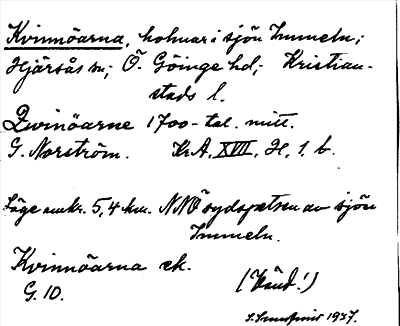 Kvinnöarna, holmar i sjön Immeln;
Hjärsås sn; Ö. Göinge hd; Kristian-
stads l.
Qvinöarne 1700-tal. mitt.
G. Norström. KrA, XVII, H, 1, b.
Läge omkr. 5,4 km. NNÖ sydspetsen av sjön
Immeln.
Kvinnöarna ek.
G. 10. (Känd!)
1937.